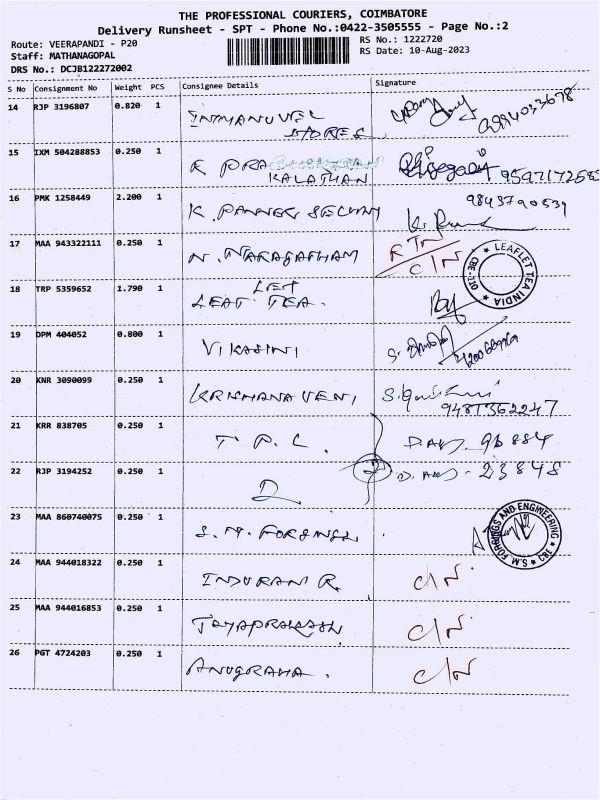 THE PROFESSIONAL COURIERS, COIMBATORE
Delivery Runsheet - SPT - Phone No.:0422-3505555 - Page No.:2
Route: VEERAPANDI - P20
RS No.: 1222720
Staff: MATHANAGOPAL
RS Date: 10-Aug-2023
DRS No.: DCJB122272002
S No Consignment No Weight PCS Consignee Details Signature
14 RJP 3196807 0.820 1 INMANUVEL
STORES
15 IXM 504288853 0.250 1 R PRA
KALATHAN
16 PMK 1258449 2.200 1 K. PANNER SELVAM 9843790539
17 MAA 943322111 0.250 1 N. NARAGATHAM RTN
C/N
18 TRP 5359652 1.790 1 LEF
LEAT TEA.
LEAFLET TEA INDIA
19 DPM 404052 0.800 1 VIKASINI
20 KNR 3090099 0.250 1 KRISHNAVENI
9481362247
21 KRR 838705 0.250 1 T. P. L. 96884
22 RJP 3194252 0.250 1 23848
23 MAA 860740075 0.250 1 S. M. FORGINGS
S.M. FORGINGS AND ENGINEERING
24 MAA 944018322 0.250 1 INDURANI R. C/N
25 MAA 944016853 0.250 1 JAYAPRAKASH C/N
26 PGT 4724203 0.250 1 ANUGRAHA. C/N